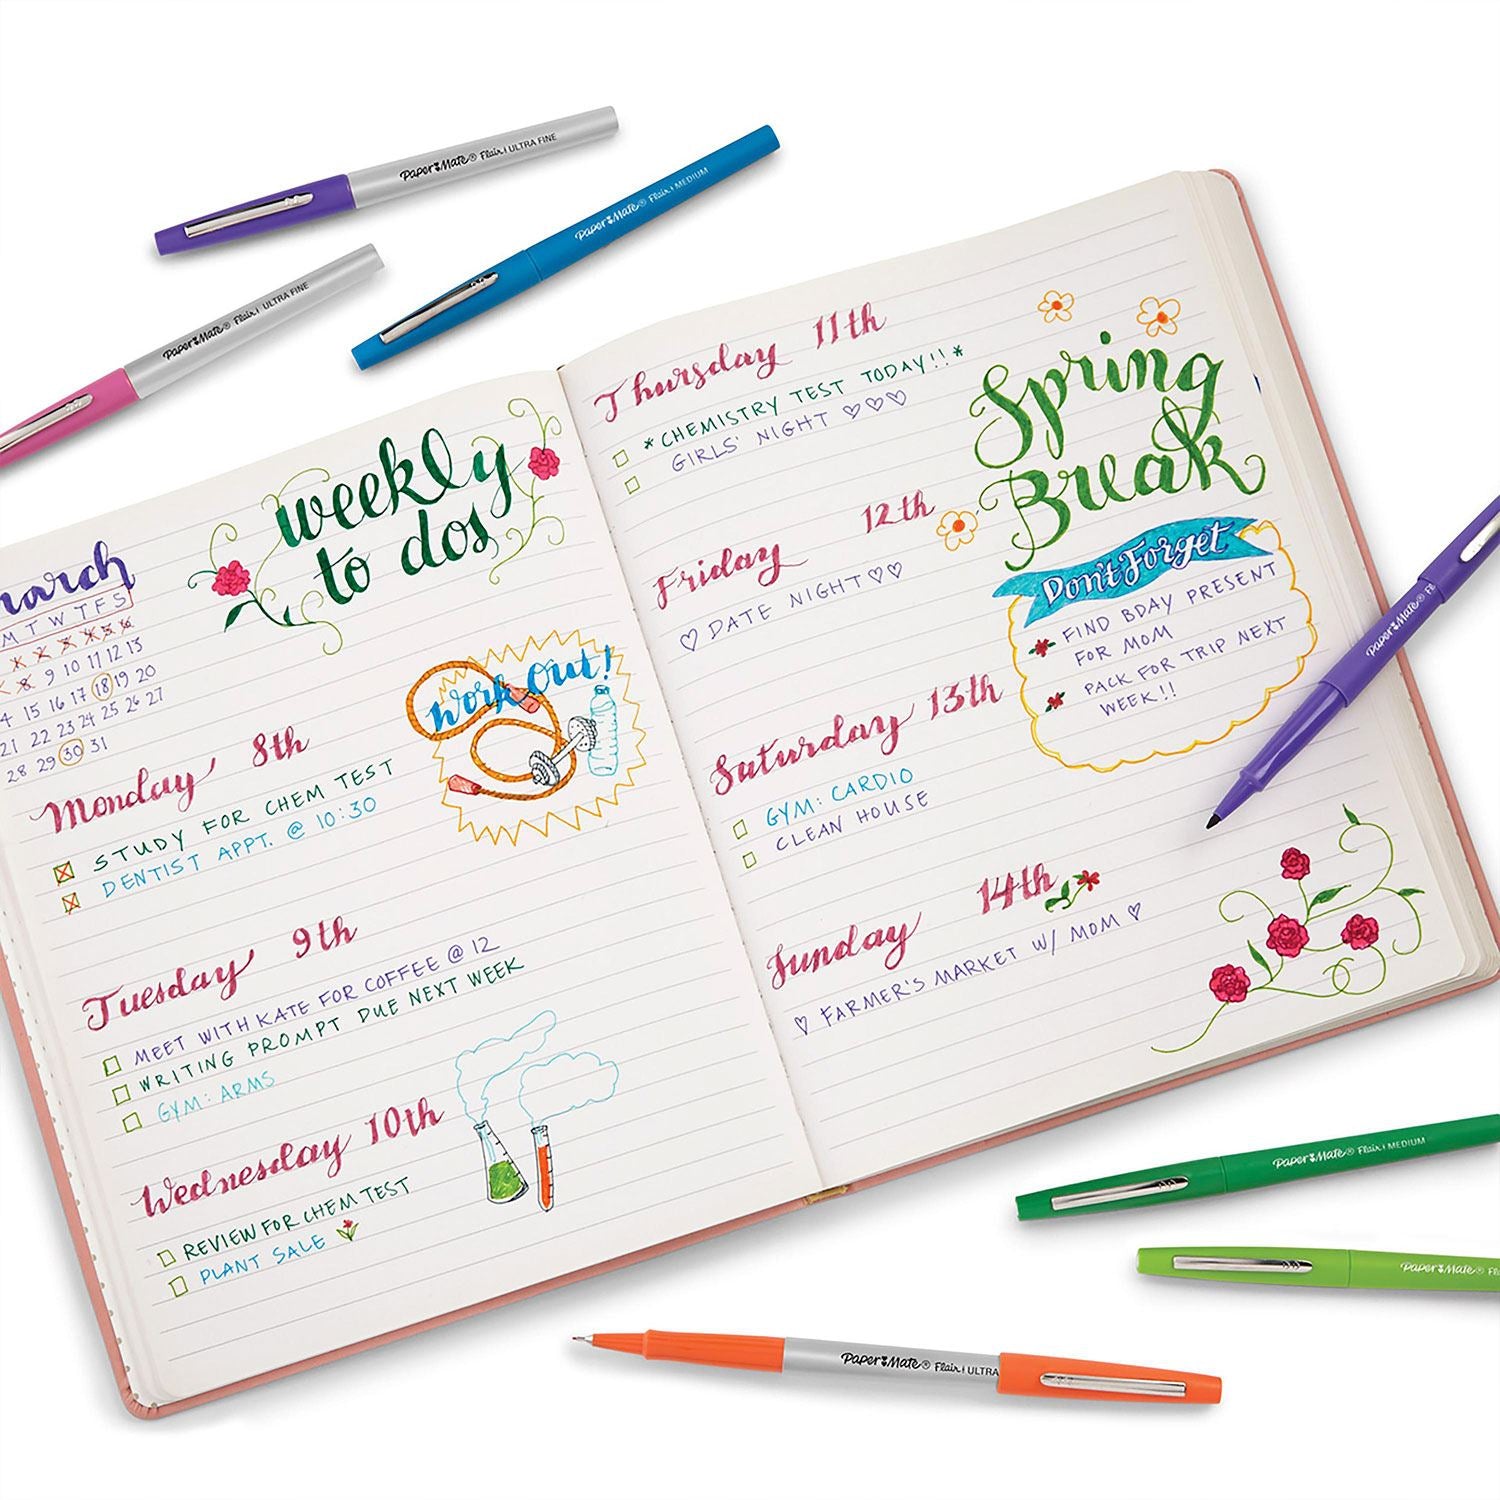 Paper Mate® Flair | ULTRA FINE
Paper Mate® Flair | MEDIUM
Paper Mate® Flair | ULTRA FINE
weekly
to dos
arch
M T W T F S
8 9 10 11 12 13
4 15 16 17 18 19 20
21 22 23 24 25 26 27
28 29 30 31
Work Out!
Monday 8th
STUDY FOR CHEM TEST
DENTIST APPT. @ 10:30
Tuesday 9th
MEET WITH KATE FOR COFFEE @ 12
WRITING PROMPT DUE NEXT WEEK
GYM: ARMS
Wednesday 10th
REVIEW FOR CHEM TEST
PLANT SALE
Thursday 11th
*CHEMISTRY TEST TODAY!!*
GIRLS' NIGHT ♡♡♡
Friday 12th
♡ DATE NIGHT ♡♡
Saturday 13th
GYM: CARDIO
CLEAN HOUSE
Sunday 14th
♡ FARMER'S MARKET W/ MOM ♡
Spring
Break
Don't Forget
FIND BDAY PRESENT
FOR MOM
PACK FOR TRIP NEXT
WEEK!!
Paper Mate® F
Paper Mate® Flair | MEDIUM
Paper Mate® Fl
Paper Mate® Flair | ULTRA